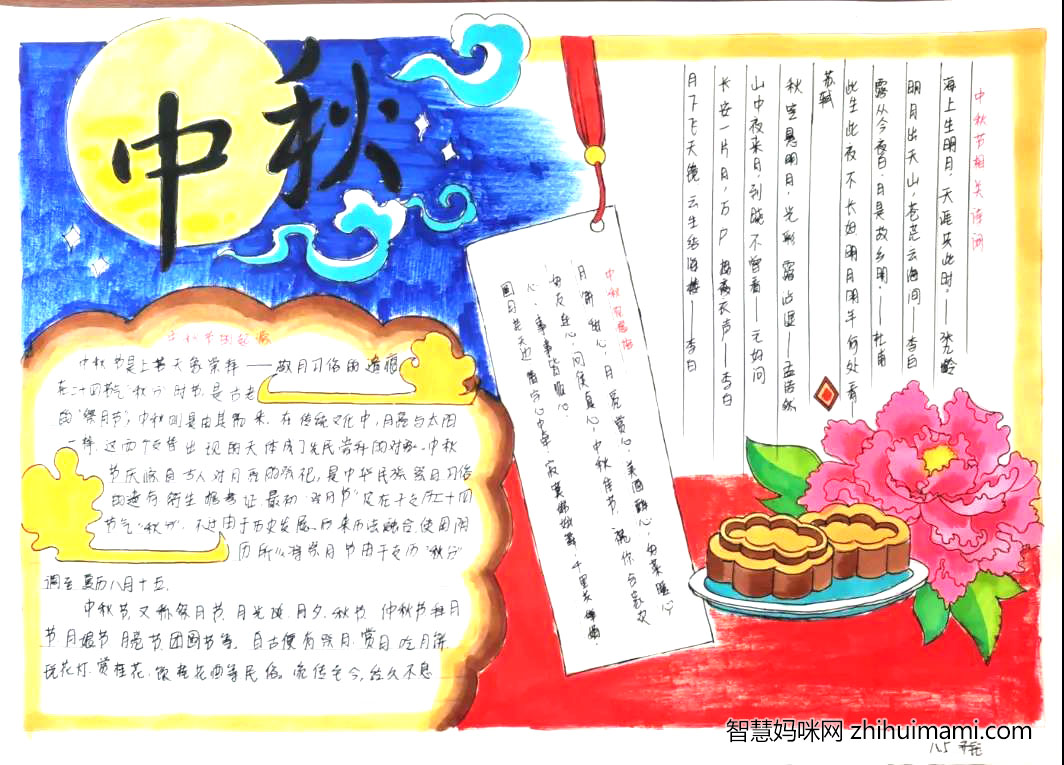 中秋
中秋节的起源
中秋节是上古天象崇拜——敬月习俗的遗痕
在二十四节气"秋分"时节,是古老
的"祭月节",中秋则是由其而来.在传统文化中,月亮与太阳
一样,这两个交替出现的天体成了先民崇拜的对象.中秋
节庆源自古人对月亮的祭祀,是中华民族祭月习俗
的遗存衍生.据考证,最初"祭月节"是在干支历二十四
节气"秋分",不过由于历史发展,后来历法融合,使用阴
历,所以将祭月节由干支历"秋分"
调至夏历八月十五.
中秋节,又称祭月节、月光诞、月夕、秋节、仲秋节、拜月
节、月娘节、月亮节、团圆节等。自古便有祭月、赏月、吃月饼、
玩花灯、赏桂花、饮桂花酒等民俗。流传至今,经久不息
中秋祝福语
月饼甜心,月亮赏心,美酒醉心,
朋友连心,问候真心,中秋佳节,祝你合家欢
心,事事皆顺心.
中秋节相关诗词
海上生明月,天涯共此时.——张九龄
明月出天山,苍茫云海间——李白
露从今夜白,月是故乡明.——杜甫
此生此夜不长好,明月明年何处看——
苏轼
秋空悬明月,光彩露沾湿——孟浩然
山中夜来月,到晓不曾看——元好问
长安一片月,万户捣衣声——李白
月下飞天镜,云生结海楼——李白
智慧妈咪网 zhihuimami.com